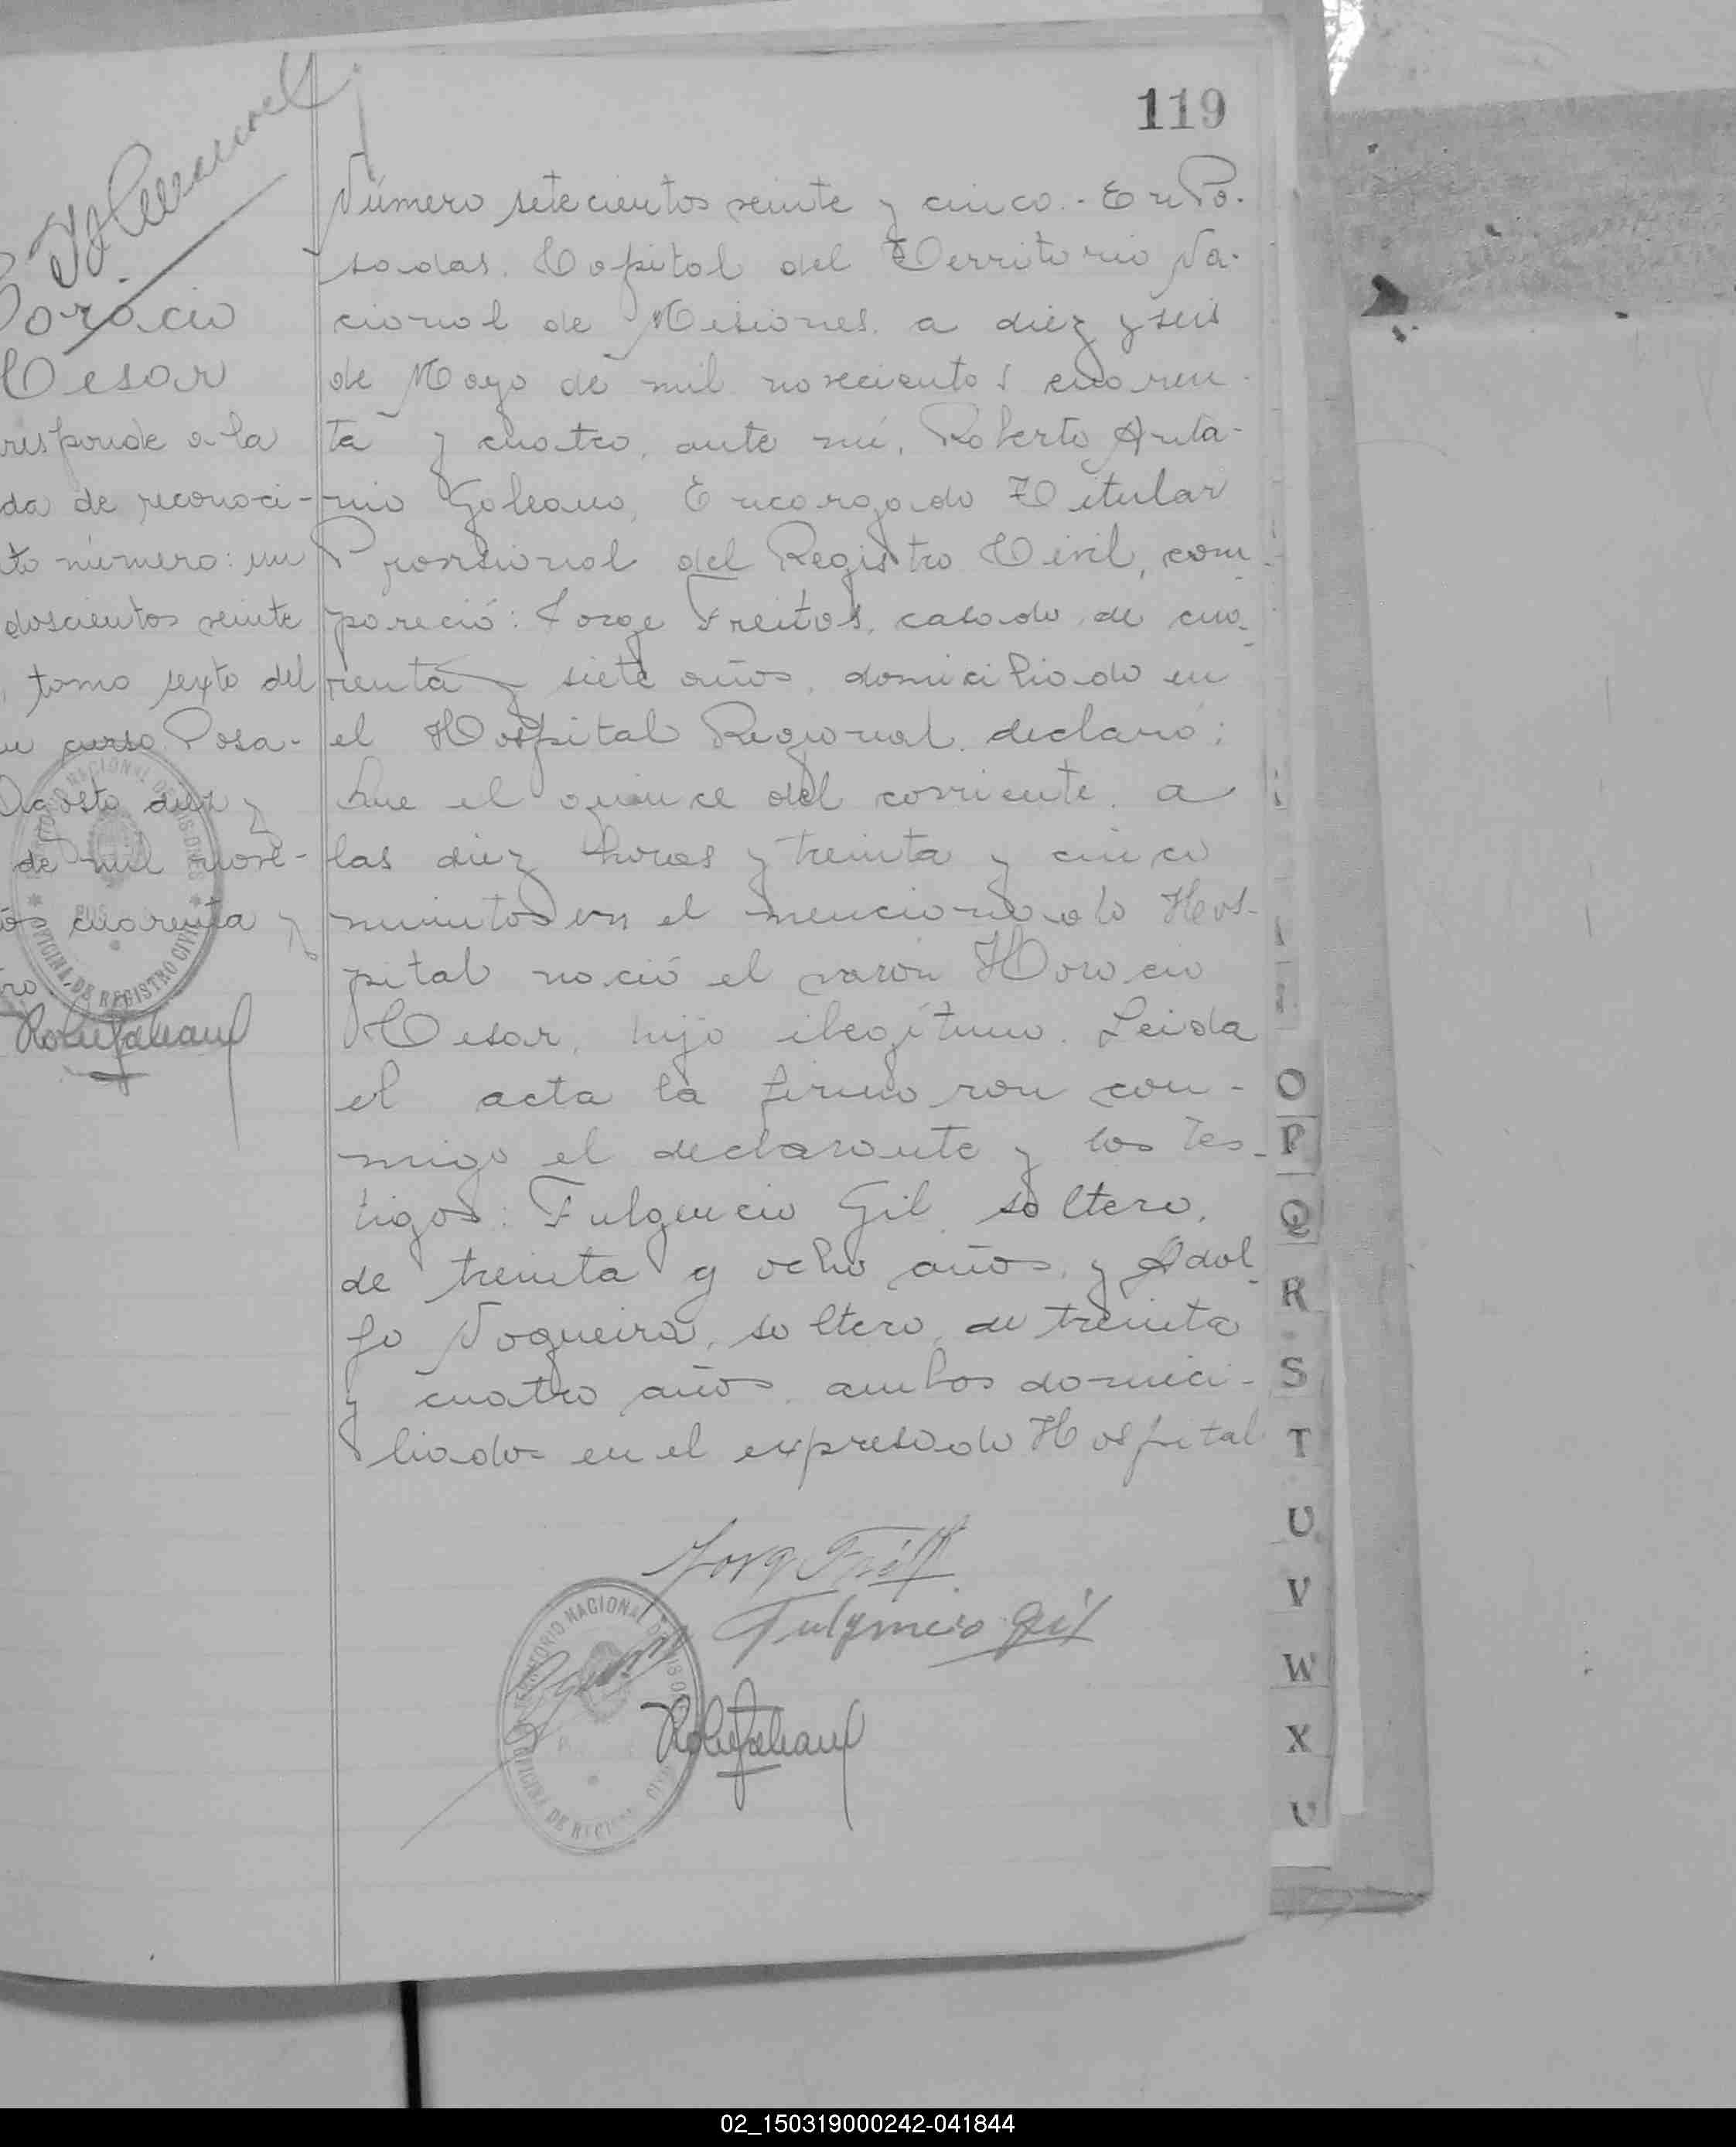 119
Número setecientos veinte y cinco.- En Po-
sadas, Capital del Territorio Na-
cional de Misiones, a diez y seis
de Mayo de mil novecientos cuaren-
ta y cuatro, ante mí, Roberto Anto-
nio Galeano, Encargado Titular
Provisional del Registro Civil, com-
pareció: Jorge Freitas, casado, de cua-
renta y siete años, domiciliado en
el Hospital Regional, declaró:
Que el quince del corriente, a
las diez horas y treinta y cinco
minutos en el mencionado Hos-
pital nació el varón Horacio
Cesar, hijo ilegítimo. Leida
el acta la firmaron con-
migo el declarante y los tes-
tigos: Fulgencio Gil, soltero,
de treinta y ocho años, y Adol-
fo Nogueira, soltero, de treinta
y cuatro años, ambos domici-
liados en el expresado Hospital
Fulgencio Gil
TERRITORIO NACIONAL DE MISIONES
OFICINA DE REGISTRO CIVIL
Horacio
Cesar
responde a la
da de reconoci-
to número: un
doscientos veinte
, tomo sexto del
en curso. Posa-
Agosto diez y
de mil nove-
os cuarenta y
tro.
TERRITORIO NACIONAL DE MISIONES
OFICINA DE REGISTRO CIVIL
O
P
Q
R
S
T
U
V
W
X
02_150319000242-041844